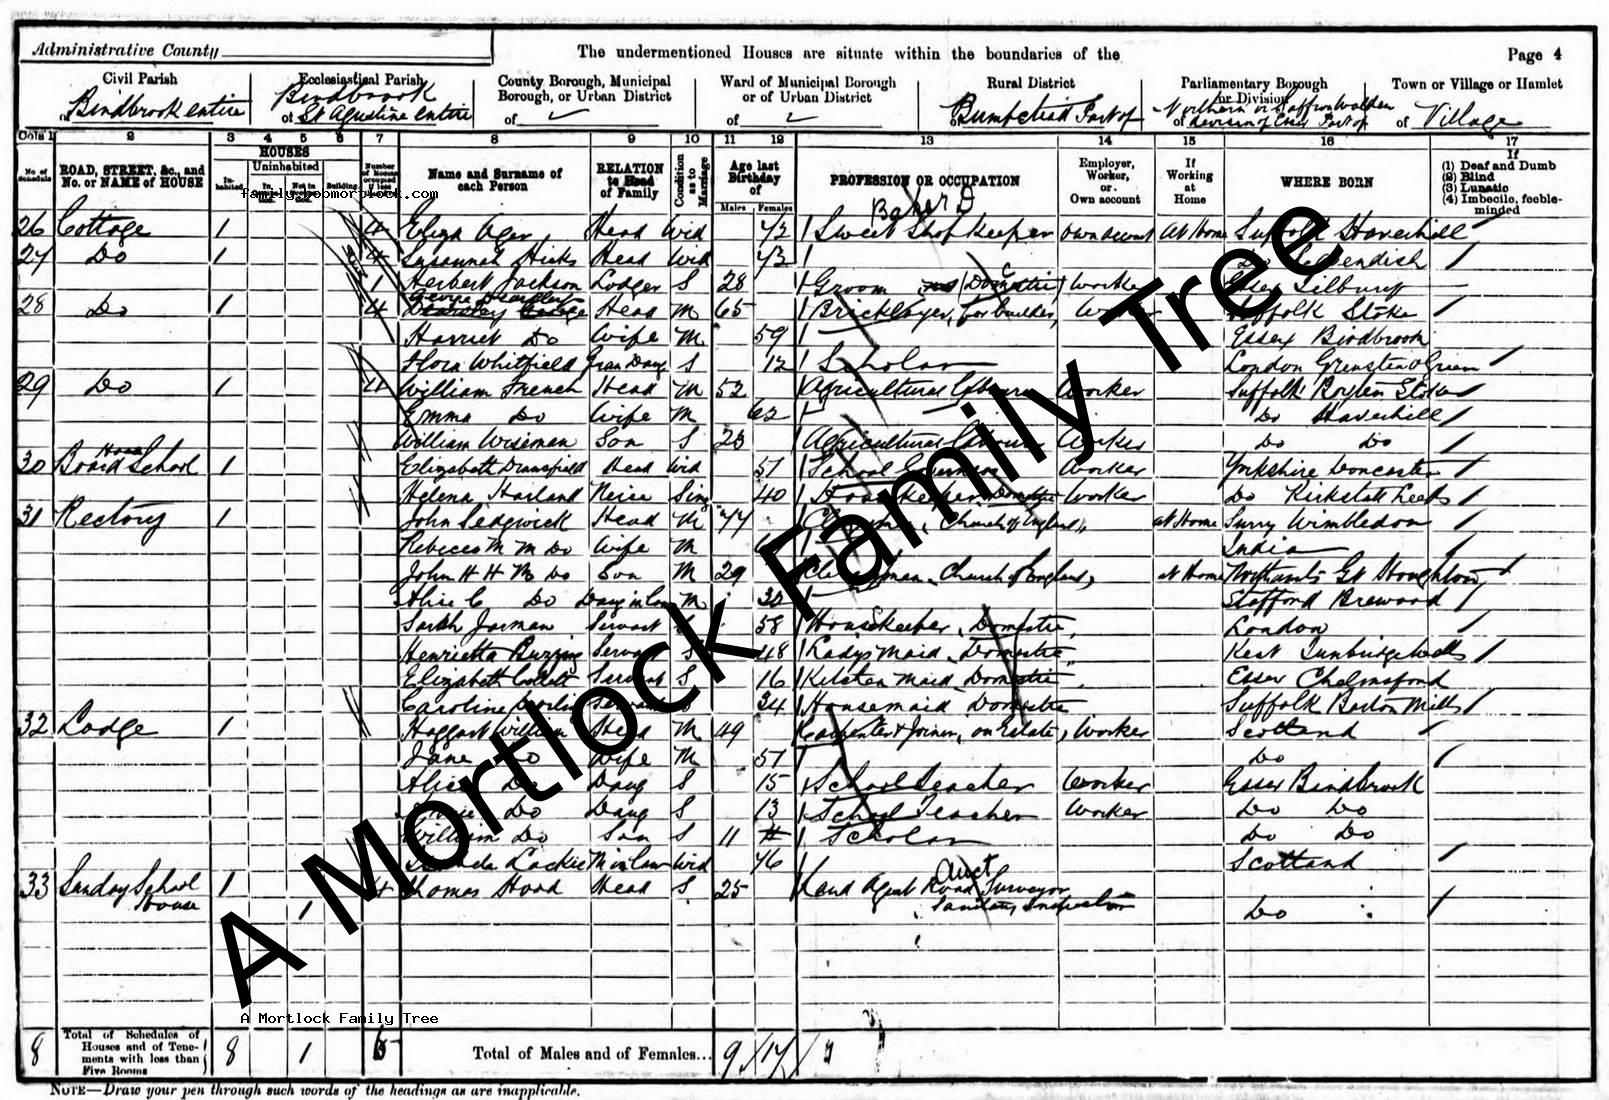 Administrative County
The undermentioned Houses are situate within the boundaries of the
Page 4
Civil Parish
of Birdbrook entire
Ecclesiastical Parish
Birdbrook
of St Agustine entire
County Borough, Municipal
Borough, or Urban District
of
Ward of Municipal Borough
or of Urban District
of
Rural District
of Bumpstead Part of
Parliamentary Borough
or Division
Northern or Saffron Walden
of Division of Essex Part of
Town or Village or Hamlet
of Village
Cols 1 2 3 4 5 6 7 8 9 10 11 12 13 14 15 16 17
No. of Schedule
ROAD, STREET, &c., and
No. or NAME of HOUSE
HOUSES
Inhabited
Uninhabited
Building
Number of Rooms occupied if less
Name and Surname of
each Person
RELATION
to Head
of Family
Condition as to Marriage
Age last
Birthday
of
Males Females
PROFESSION OR OCCUPATION
Employer,
Worker,
or
Own account
If
Working
at
Home
WHERE BORN
If
(1) Deaf and Dumb
(2) Blind
(3) Lunatic
(4) Imbecile, feeble-
minded
family.bobmortlock.com
Baker
26 Cottage 1 4 Eliza Ager Head Wid 42 Sweet Shop Keeper Own account At Home Suffolk Haverhill
27 Do 1 4 Susannah Hicks Head Wid 43 Do Cavendish
1 Herbert Jackson Lodger S 28 Groom (Domestic) Worker Essex Tilbury
George
28 Do 1 4 Head M 65 Bricklayer, for builder, Worker Suffolk Stoke
Harriet Do Wife M 59 Essex Birdbrook
Flora Whitfield Gran Daug S 12 Scholar London
29 Do 1 4 William French Head M 52 Agricultural Labourer Worker Suffolk Stoke
Emma Do Wife M 62 Do Haverhill
William Wiseman Son S 23 Agricultural Labourer Worker Do Do
30 Board School House 1 Elizabeth Dransfield Head Wid 57 School Worker Yorkshire Doncaster
Helena Harland Neice Sing 40 Housekeeper Domestic Worker Do Kirkstall Leeds
31 Rectory 1 John Sedgwick Head M 77 Clergyman, (Church of England), at Home Surry Wimbledon
Rebecca M M Do Wife M India
John H H M Do Son M 29 Clergyman, Church of England, at Home Northants Gt
Alice C Do Daug in law M 30 Stafford Brewood
Sarah Jarman Servant S 58 Housekeeper, Domestic, London
Henrietta Servant S 48 Ladys Maid, Domestic Kent Tunbridge Wells
Elizabeth Servant S 16 Kitchen Maid, Domestic, Essex Chelmsford
Caroline Servant S 34 Housemaid, Domestic Suffolk Barton Mills
32 Lodge 1 Haggart William Head M 49 Carpenter & Joiner, on Estate, Worker Scotland
Jane Do Wife M 57 Do
Alice Do Daug S 15 School Teacher Worker Essex Birdbrook
Do Daug S 13 School Teacher Worker Do Do
William Do Son S 11 Scholar Do Do
Lackie M in law Wid 76 Scotland
33 Sunday School House 1 1 4 Thomas Hood Head S 25 Land Agent Road Surveyor
Sanitary Inspector Do
A Mortlock Family Tree
A Mortlock Family Tree
8
Total of Schedules of
Houses and of Tene-
ments with less than
Five Rooms
8 1
Total of Males and of Females... 9 17
NOTE—Draw your pen through such words of the headings as are inapplicable.